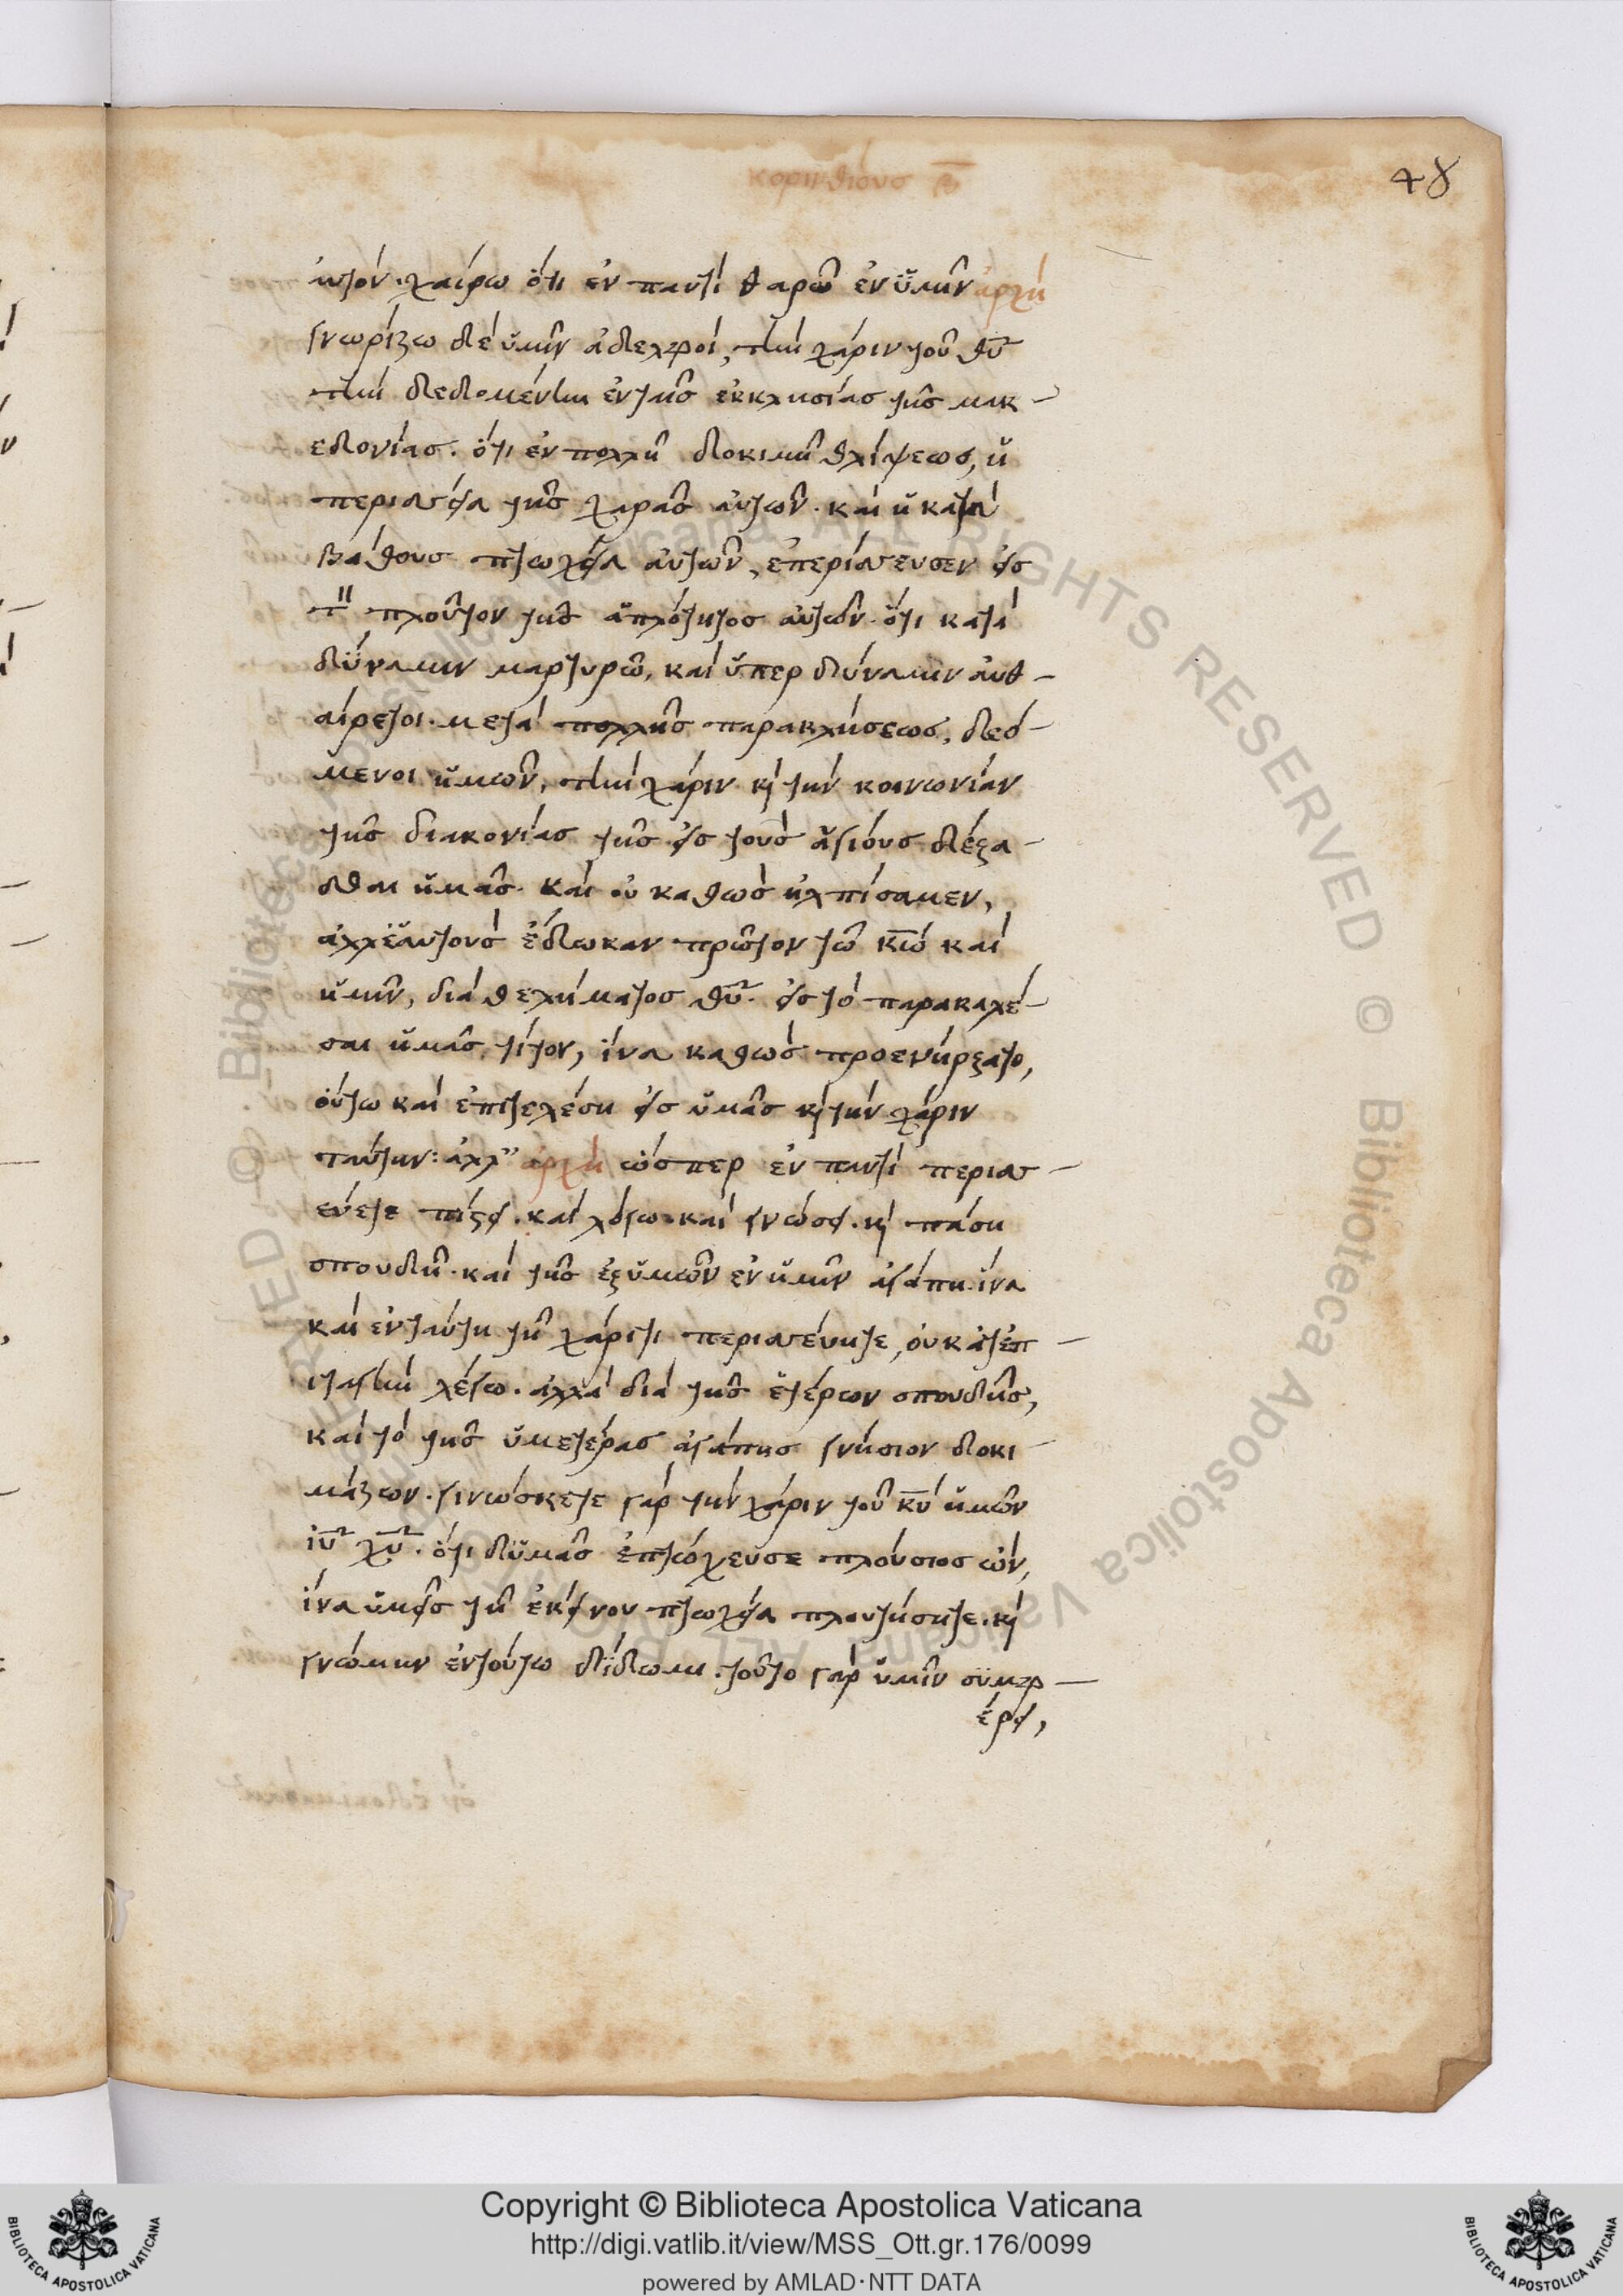 κορινθίους β
48
ἀυτόν. χαίρω ὅτι ἐν παντὶ θαρῶ ἐν ὑμῖν ἀρχὴ
γνωρίζω δὲ ὑμῖν ἀδελφοί, τὴν χάριν τοῦ θυ
τὴν δεδομένην ἐν ταῖς ἐκκλησίας τῆς μακ
εδονίας. ὅτι ἐν πολλῆ δοκιμῆ θλίψεως, ἡ
περισσεία τῆς χαρᾶς αὐτῶν. καὶ ἡ κατὰ
βάθους πτωχεία αὐτῶν, ἐπερίσσευσεν εἰς
τὸν πλοῦτον τῆς ἁπλότητος αὐτῶν. ὅτι κατὰ
δύναμιν μαρτυρῶ, καὶ ὑπερ δύναμιν ἀυθ
αίρετοι. μετὰ πολλῆς παρακλήσεως, δεό
μενοι ἡμῶν, τὴν χάριν κὶ τὴν κοινωνίαν
τῆς διακονίας τῆς εἰς τοὺς ἁγίους δέξα
σθαι ἡμᾶς. καὶ οὐ καθὼς ἠλπίσαμεν,
ἀλλ' ἑαυτοὺς ἔδωκαν πρῶτον τῶ κω καὶ
ἡμῖν, διὰ θελήματος θυ. εἰς τὸ παρακαλέ
σαι ἡμᾶς τίτον, ἵνα καθὼς προενήρξατο,
οὕτω καὶ ἐπιτελέση εἰς ὑμᾶς κὶ τὴν χάριν
ταύτην: ἀλλ' ἀρχὴ ὥσπερ ἐν παντὶ περισσ
εύετε πίστει. καὶ λόγω. καὶ γνώσει. κὶ πάση
σπουδῆ. καὶ τῆς ἐξ ὑμῶν ἐν ἡμῖν ἀγάπη. ἵνα
καὶ ἐν ταύτη τῆ χάριτι περισσεύητε, οὐ κατ' ἐπ
ιταγὴν λέγω. ἀλλὰ διὰ τῆς ἑτέρων σπουδῆς,
καὶ τὸ τῆς ὑμετέρας ἀγάπης γνήσιον δοκι
μάζων. γινώσκετε γὰρ τὴν χάριν τοῦ κυ ἡμῶν
ιυ χυ. ὅτι δι' ὑμᾶς ἐπτώχευσε πλούσιος ὢν,
ἵνα ὑμεῖς τῆ ἐκείνου πτωχεία πλουτήσητε. κὶ
γνώμην ἐν τούτω δίδωμι. τοῦτο γὰρ ὑμῖν συμφ
έρει,
Copyright © Biblioteca Apostolica Vaticana
http://digi.vatlib.it/view/MSS_Ott.gr.176/0099
powered by AMLAD·NTT DATA